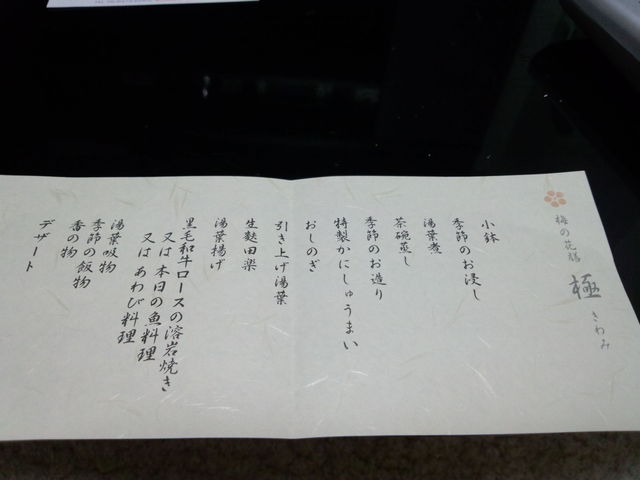 梅の花膳
極
きわみ
小鉢
季節のお浸し
湯葉煮
茶碗蒸し
季節のお造り
特製かにしゅうまい
おしのぎ
引き上げ湯葉
生麩田楽
湯葉揚げ
黒毛和牛ロースの溶岩焼き
又は 本日の魚料理
又は あわび料理
湯葉吸物
季節の飯物
香の物
デザート